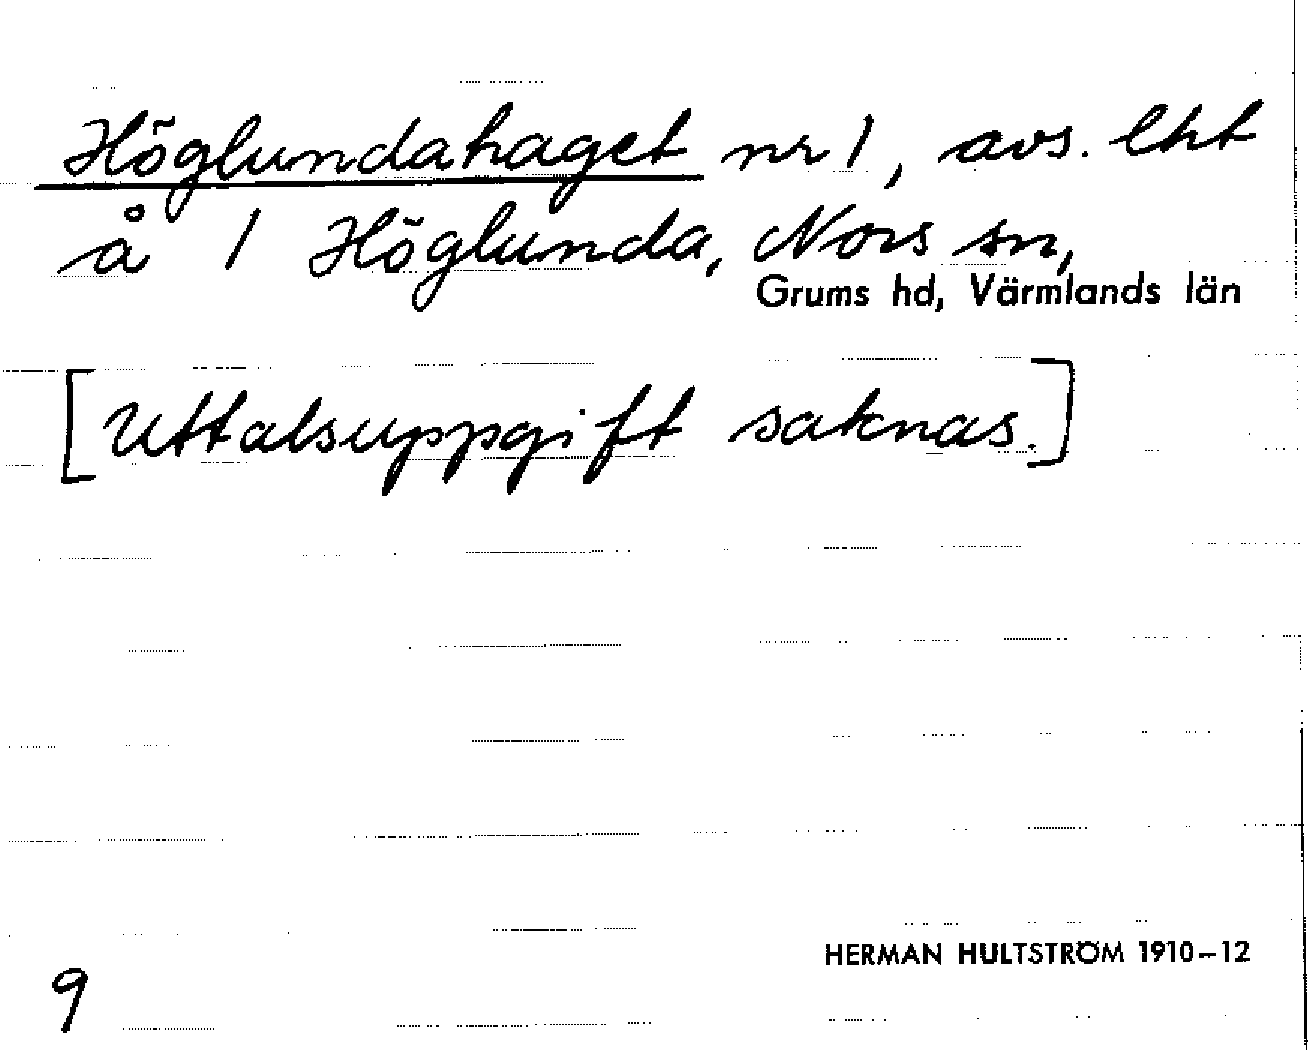 Höglundahaget nr 1, avs. lht
å 1 Höglunda, Nors sn,
Grums hd, Värmlands län
[Uttalsuppgift saknas.]
HERMAN HULTSTRÖM 1910–12
9